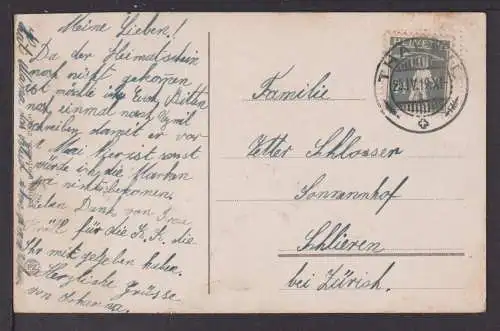 Meine Lieben!
Da der Heimatschein
noch nicht gekommen
ist möchte ich Euch bitten
noch einmal nach
schreiben damit er vor
Mai hier ist sonst
würde ich die Marken
ja nicht bekommen.
Vielen Dank von Frau
für die K. K. die
Ihr mit gegeben haben.
Herzliche Grüsse
von Johanna.
HELVETIA
THALWIL
Familie
Vetter Schlosser
Sonnenhof
Schlieren
bei Zürich.